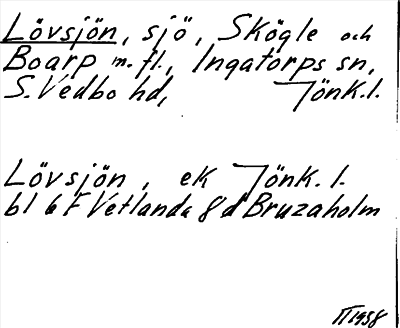 Lövsjön, sjö, Skögle och
Boarp m. fl., Ingatorps sn,
S. Vedbo hd, Jönk.l.
Lövsjön, ek Jönk. l.
bl 6 F Vetlanda 8 d Bruzaholm
1958